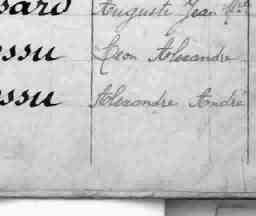 sard Auguste Jean M
essu Léon Alexandre
essu Alexandre André